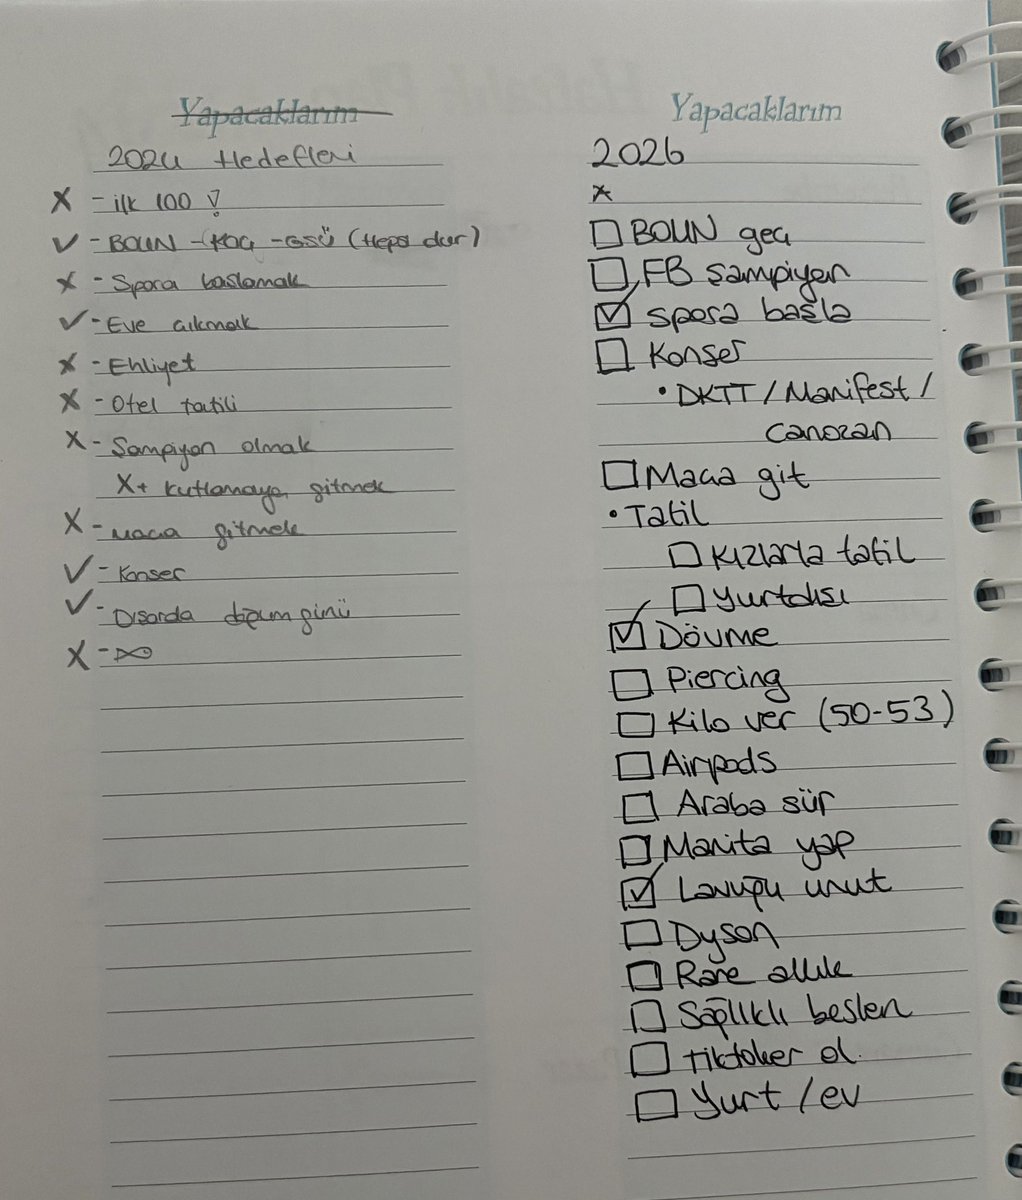 Yapacaklarım
2024 Hedefleri
X - ilk 100 !
✓ - BOUN - KOÇ - GSÜ (Hepsi olur)
X - Spora başlamak
✓ - Eve çıkmak
X - Ehliyet
X - Otel tatili
X - Şampiyon olmak
X + kutlamaya gitmek
X - maça gitmek
✓ - Konser
✓ - Dışarda doğum günü
X -
Yapacaklarım
2026
x
☐ BOUN geç
☐ FB şampiyon
☑ spora başla
☐ Konser
• DKTT / Manifest /
canozan
☐ Maça git
• Tatil
☐ Kızlarla tatil
☐ Yurtdışı
☑ Dövme
☐ Piercing
☐ Kilo ver (50-53)
☐ Airpods
☐ Araba sür
☐ Manita yap
☑ Lavuğu unut
☐ Dyson
☐ Rare allık
☐ Sağlıklı beslen
☐ tiktoker ol.
☐ Yurt / ev